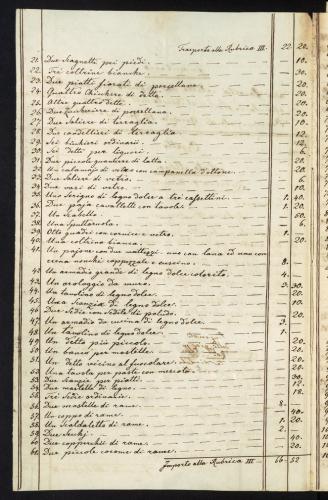 Trasporto alla Rubrica III. 22. 20.
21. Due Scagnetti pei piedi. 10.
22. Tre coltrine bianche. 30.
23. Due piatti fiorati di porcellana. 20.
24. Quattro Chicchere di detta. 20.
25. Altre quattro dette. 20.
26. Due Zucheriere di porcellana. 20.
27. Due Saliere di terraglia
28. Due candellieri di terraglia 12.
29. Sei bichieri ordinarii. 12.
30. Sei detti per liquori. 6.
31. Due piccole guantiere di latta. 20.
32. Un calamajo di vetro con campanella d'ottone. 20.
33. Due Saliere di vetro. 6.
34. Due vasi di vetro.
35. Uno Scrigno di legno dolce a tre cassettini. 1.
36. Due paja cavalletti con tavole. 2. 20.
37. Un Scabello.
38. Una Sputtarola. 6.
39. Otto quadri con cornice e vetro. 1.
40. Una coltrina bianca. 20.
41. Un pajone con due mattezzi, uno con lana ed uno con
crena nonchè coppezzale e cuscino. 8.
42. Un armadio grande di legno dolce colorito. 4.
43. Un orologgio da muro. 3. 30.
44. Un tavolino di legno dolce. 20.
45. Una Scanzia di legno dolce. 10.
46. Sei Sedie con Sedile di palude. 20.
47. Un armadio da cucina di legno dolce. 3.
48. Un tavolino di legno dolce. 1.
49. Un detto più piccolo. 20.
50. Un banco per mastelle. 20.
51. Un detto vicino al focolare. 20.
52. Una tavola per paste con mescola. 20.
53. Due Scanzie per piatti. 12.
54. Due mastelle di legno. 12.
55. Tre Sedie ordinarie. 18.
56. Due mastelle di rame. 8.
57. Un coppo di rame. 40.
58. Un Scaldaletto di rame. 1. 20.
59. Due Secchj. 2.
60. Due copperchii di rame. 40.
61. Due piccole cocome di rame. 20.
Importo alla Rubrica III 66. 52